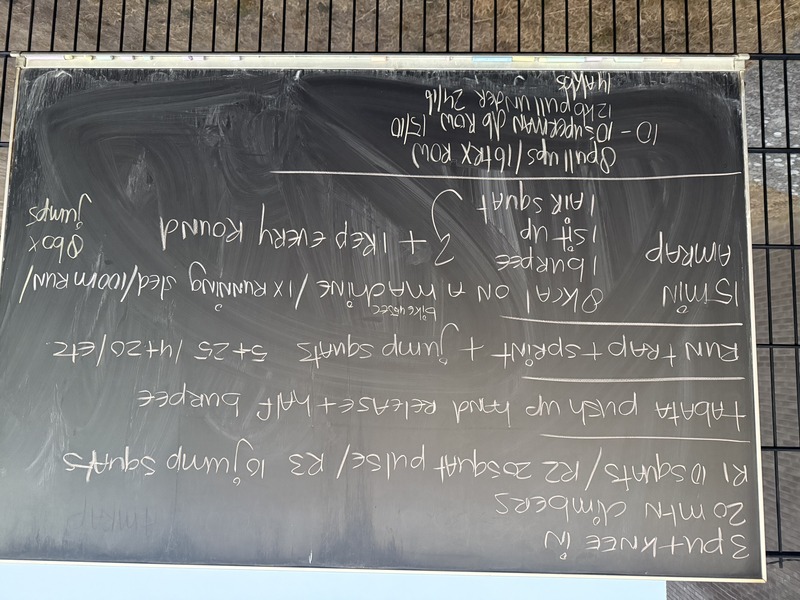 3 put KNEE in
20 mtn climbers
R1 10 squats / R2 20 squat pulse / R3 10 jump squats
tabata push up hand RELEASE + half buRpEE
RuN tRAp + SpRiNt + jump squats 5+25 / 4+20 / etc.
15 min 8 KCAl ON A mAChiNE / 1x RuNNiNg sled / 100m RuN /
bike 45sec
AmRAp 1 buRpEE 8 box
1 sit up } + 1 REp EvERy RouNd jumps
1 AiR SquAt
8 pull ups / 16 tRX ROW
10 - 10 supERmAN db ROW 15/10
12 kb pull uNdER 24/16